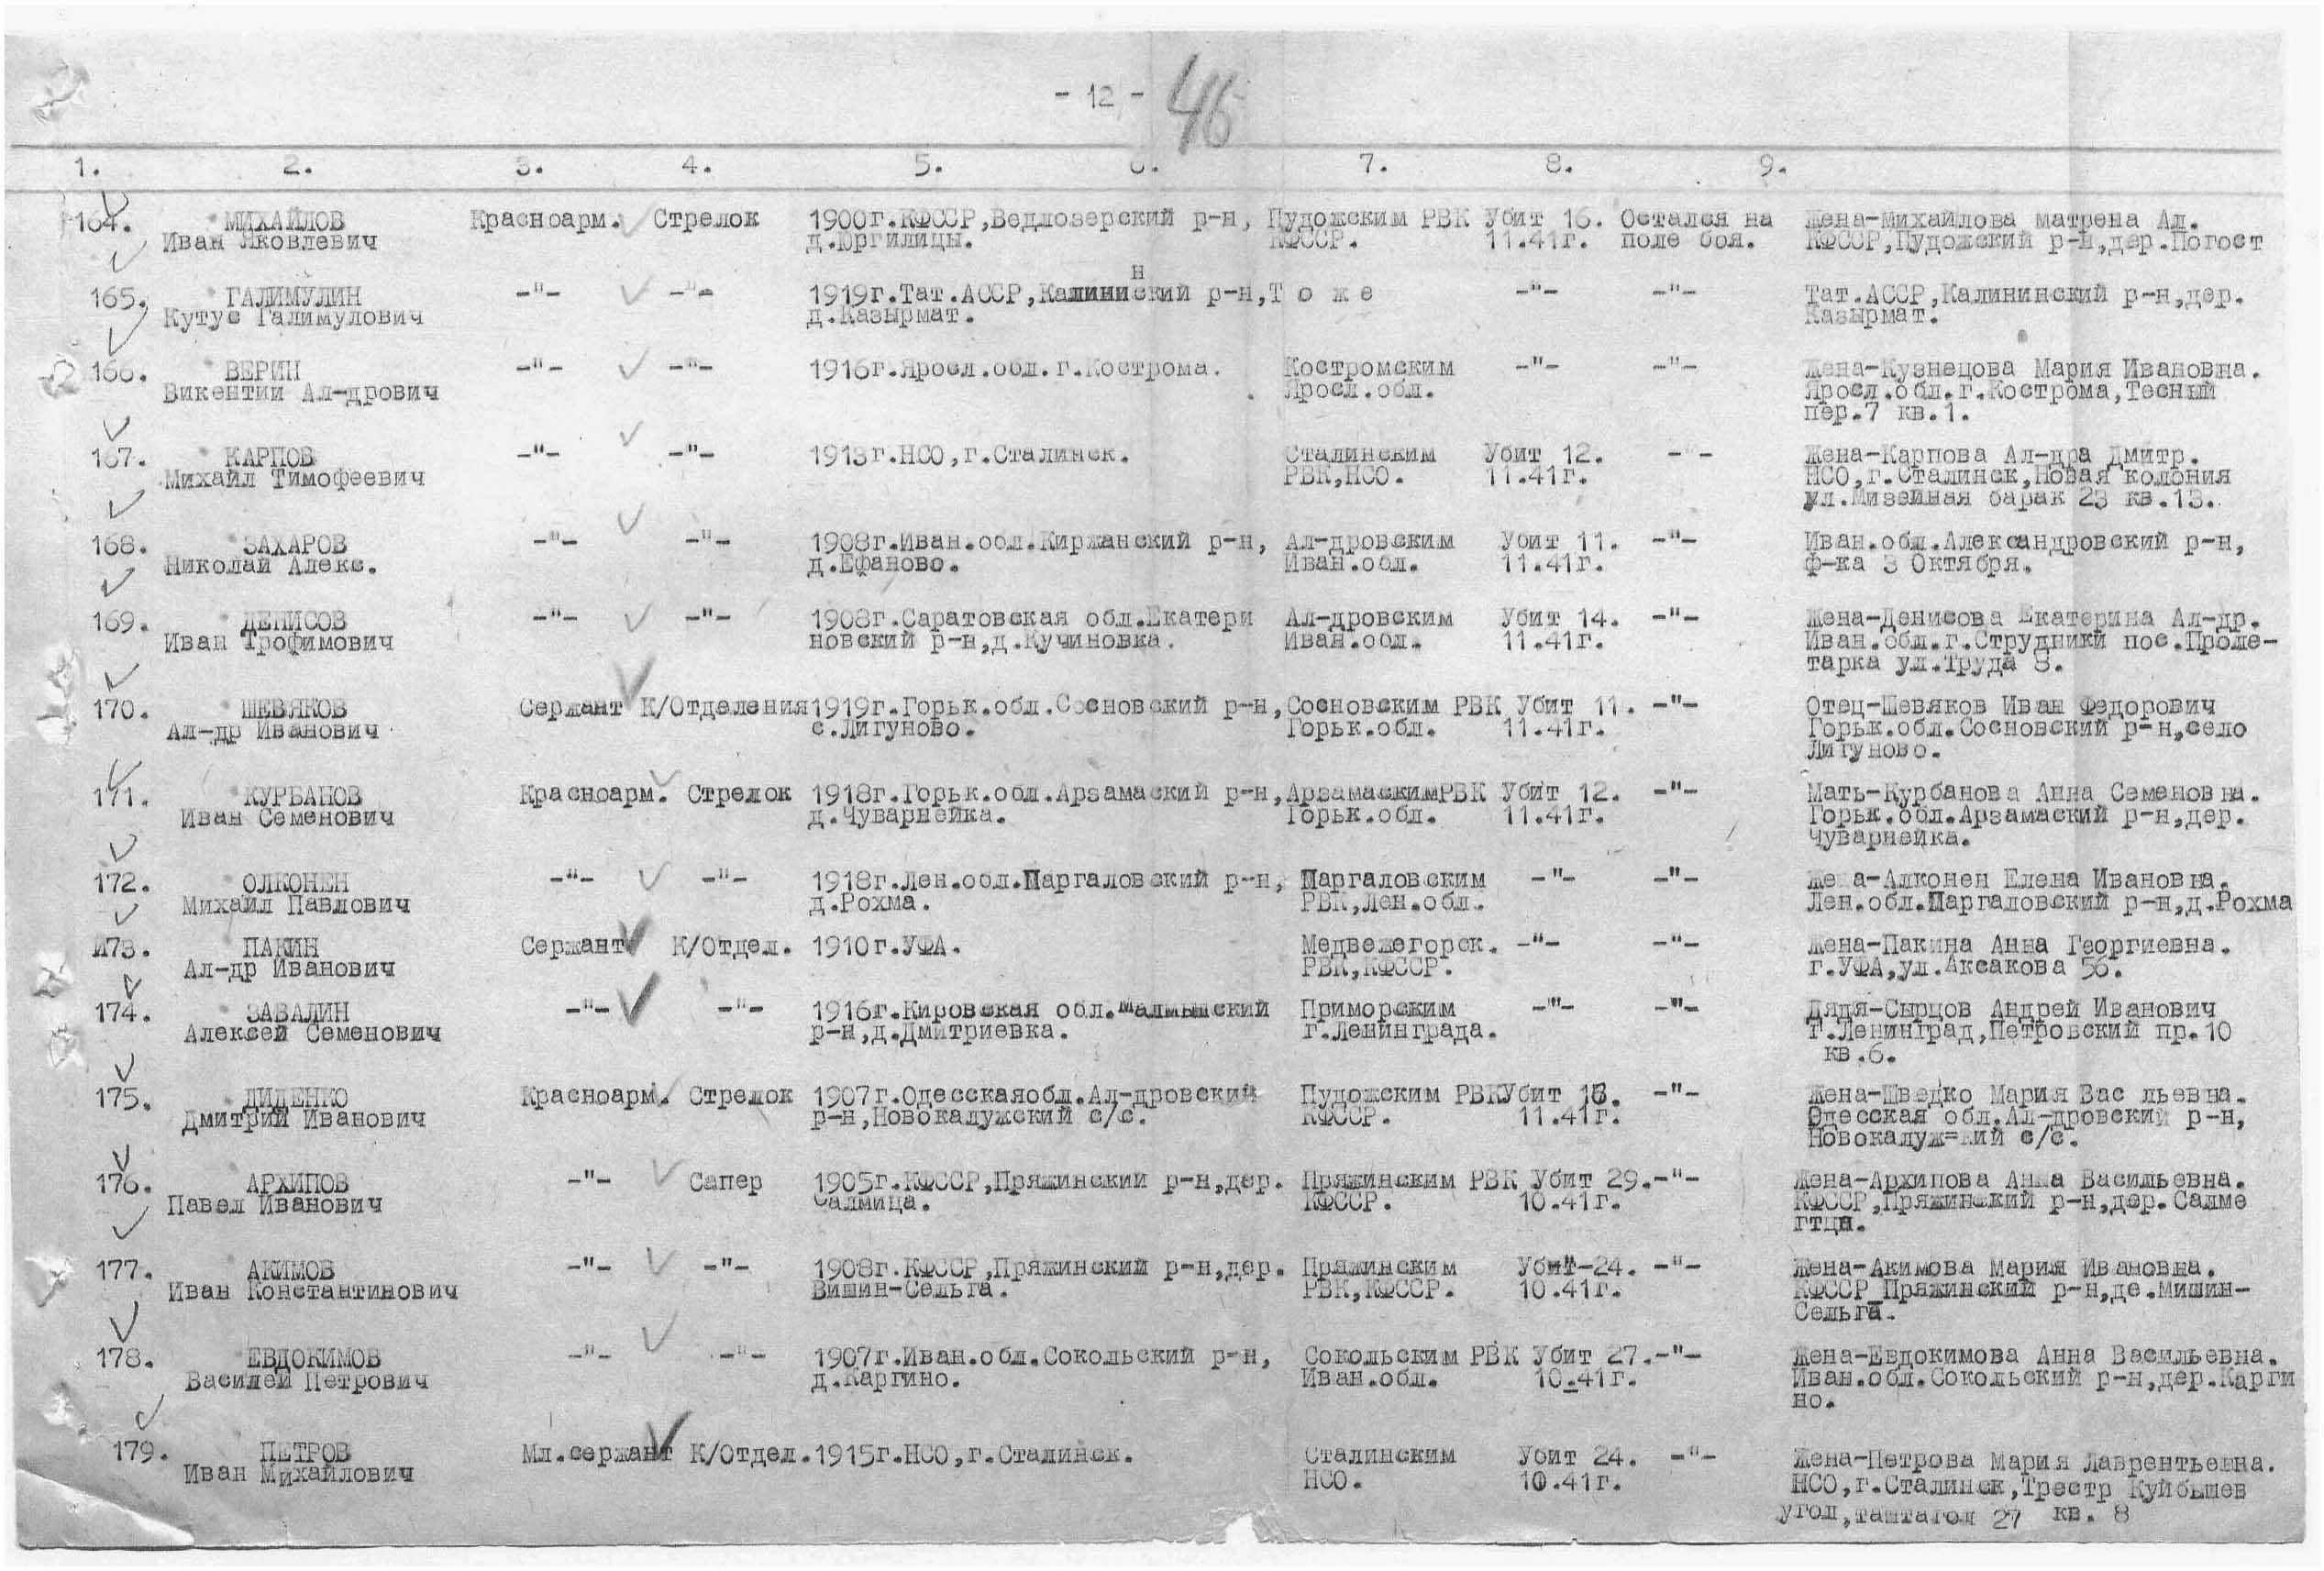 - 12 - 46
1. 2. 3. 4. 5. 6. 7. 8. 9.
164. МИХАЙЛОВ Красноарм. Стрелок 1900г.КФССР,Ведлозерский р-н, Пудожским РВК Убит 16. Остался на Жена-Михайлова Матрена Ал.
Иван Яковлевич д.Юргилицы. КФССР. 11.41г. поле боя. КФССР,Пудожский р-н,дер.Погост
н
165. ГАЛИМУЛИН -"- -"- 1919г.Тат.АССР,Калининский р-н,Т о ж е -"- -"- Тат.АССР,Калининский р-н,дер.
Кутус Галимулович д.Казырмат. Казырмат.
166. ВЕРИН -"- -"- 1916г.Яросл.обл.г.Кострома. Костромским -"- -"- Жена-Кузнецова Мария Ивановна.
Викентий Ал-дрович Яросл.обл. Яросл.обл.г.Кострома,Тесный
пер.7 кв.1.
167. КАРПОВ -"- -"- 1913г.НСО,г.Сталинск. Сталинским Убит 12. -"- Жена-Карпова Ал-дра Дмитр.
Михайл Тимофеевич РВК,НСО. 11.41г. НСО,г.Сталинск,Новая колония
ул.Мизейная барак 23 кв.13.
168. ЗАХАРОВ -"- -"- 1908г.Иван.обл.Киржанский р-н, Ал-дровским Убит 11. -"- Иван.обл.Александровский р-н,
Николай Алекс. д.Ефаново. Иван.обл. 11.41г. ф-ка 3 Октября.
169. ДЕНИСОВ -"- -"- 1908г.Саратовская обл.Екатери Ал-дровским Убит 14. -"- Жена-Денисова Екатерина Ал-др.
Иван Трофимович новский р-н,д.Кучиновка. Иван.обл. 11.41г. Иван.обл.г.Струдники пос.Проле-
тарка ул.Труда 8.
170. ШЕВЯКОВ Сержант К/Отделения 1919г.Горьк.обл.Сосновский р-н,Сосновским РВК Убит 11. -"- Отец-Шевяков Иван Федорович
Ал-др Иванович с.Лигуново. Горьк.обл. 11.41г. Горьк.обл.Сосновский р-н,село
Лигуново.
171. КУРБАНОВ Красноарм. Стрелок 1918г.Горьк.обл.Арзамаский р-н,АрзамаскимРВК Убит 12. -"- Мать-Курбанова Анна Семеновна.
Иван Семенович д.Чуварнейка. Горьк.обл. 11.41г. Горьк.обл.Арзамаский р-н,дер.
Чуварнейка.
172. ОЛКОНЕН -"- -"- 1918г.Лен.обл.Паргаловский р-н, Паргаловским -"- -"- Же а-Алконен Елена Ивановна.
Михайл Павлович д.Рохма. РВК,Лен.обл. Лен.обл.Паргаловский р-н,д.Рохма
173. ПАКИН Сержант К/Отдел. 1910г.УФА. Медвежегорск. -"- -"- Жена-Пакина Анна Георгиевна.
Ал-др Иванович РВК,КФССР. г.УФА,ул.Аксакова 56.
174. ЗАВАЛИН -"- -"- 1916г.Кировская обл.Малмышский Приморским -"- -"- Дядя-Сырцов Андрей Иванович
Алексей Семенович р-н,д.Дмитриевка. г.Ленинграда. г.Ленинград,Петровский пр.10
кв.6.
175. ДИДЕНКО Красноарм. Стрелок 1907г.Одесскаяобл.Ал-дровский Пудожским РВКУбит 16. -"- Жена-Шведко Мария Вас льевна.
Дмитрий Иванович р-н,Новокалужский с/с. КФССР. 11.41г. Одесская обл.Ал-дровский р-н,
Новокалуж=кий с/с.
176. АРХИПОВ -"- Сапер 1905г.КФССР,Пряжинский р-н,дер. Пряжинским РВК Убит 29.-"- Жена-Архипова Анна Васильевна.
Павел Иванович Салмица. КФССР. 10.41г. КФССР,Пряжинский р-н,дер.Салме
гтцн.
177. АКИМОВ -"- -"- 1908г.КФССР,Пряжинский р-н,дер. Пряжинским Убит-24. -"- Жена-Акимова Мария Ивановна.
Иван Константинович Вишин-Сельга. РВК,КФССР. 10.41г. КФССР Пряжинский р-н,де.Мишин-
Сельга.
178. ЕВДОКИМОВ -"- -"- 1907г.Иван.обл.Сокольский р-н, Сокольским РВК Убит 27.-"- Жена-Евдокимова Анна Васильевна.
Василей Петрович д.Каргино. Иван.обл. 10.41г. Иван.обл.Сокольский р-н,дер.Карги
но.
179. ПЕТРОВ Мл.сержант К/Отдел.1915г.НСО,г.Сталинск. Сталинским Убит 24. -"- Жена-Петрова Мария Лаврентьевна.
Иван Михайлович НСО. 10.41г. НСО,г.Сталинск,Трестр Куйбышев
угол,таштагол 27 кв. 8